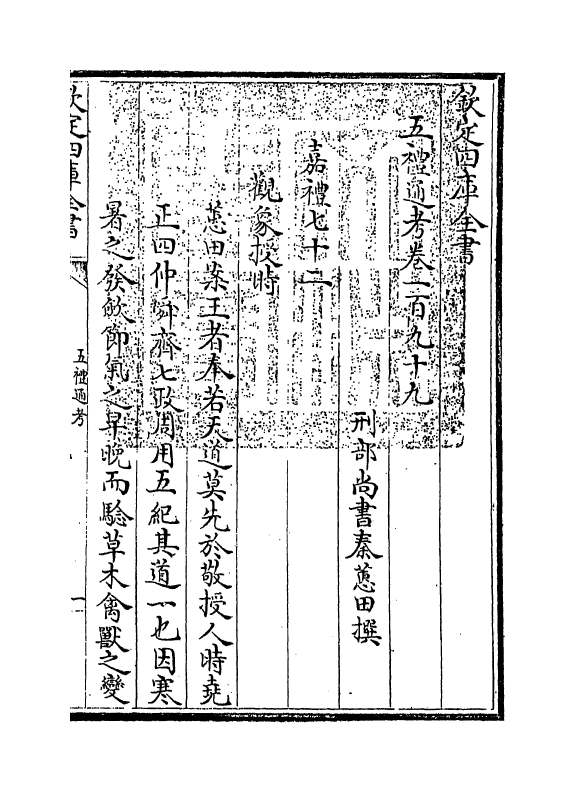 欽定四庫全書
五禮通考卷一百九十九
刑部尚書秦蕙田撰
嘉禮七十二
觀象授時
蕙田案王者奉若天道莫先於敬授人時堯
正四仲舜齊七政周用五紀其道一也因寒
暑之發斂節氣之早晚而驗草木禽獸之變
欽定四庫全書
五禮通考
一